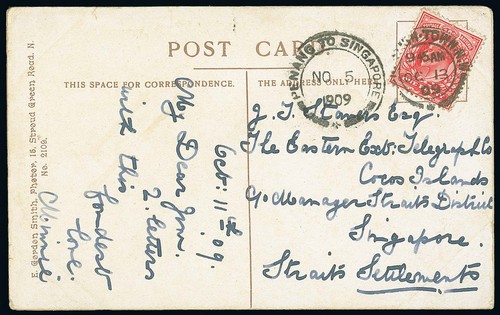 POST CARD
THIS SPACE FOR CORRESPONDENCE.
ADDRESS ONLY HERE
E. Gordon Smith, Photor, 15, Stroud Green Road, N.
No. 2109.
Oct: 11th 09.
My Dear Jim.
with this 2 letters
fondest
love.
Winnie
PENANG TO SINGAPORE
NO 5
1909
TOWN
9 15AM
OC 12
09
J. J. Stavers Esq.
The Eastern Ext: Telegraph Co
Cocos Islands
C/o Manager Straits District
Singapore.
Straits Settlements